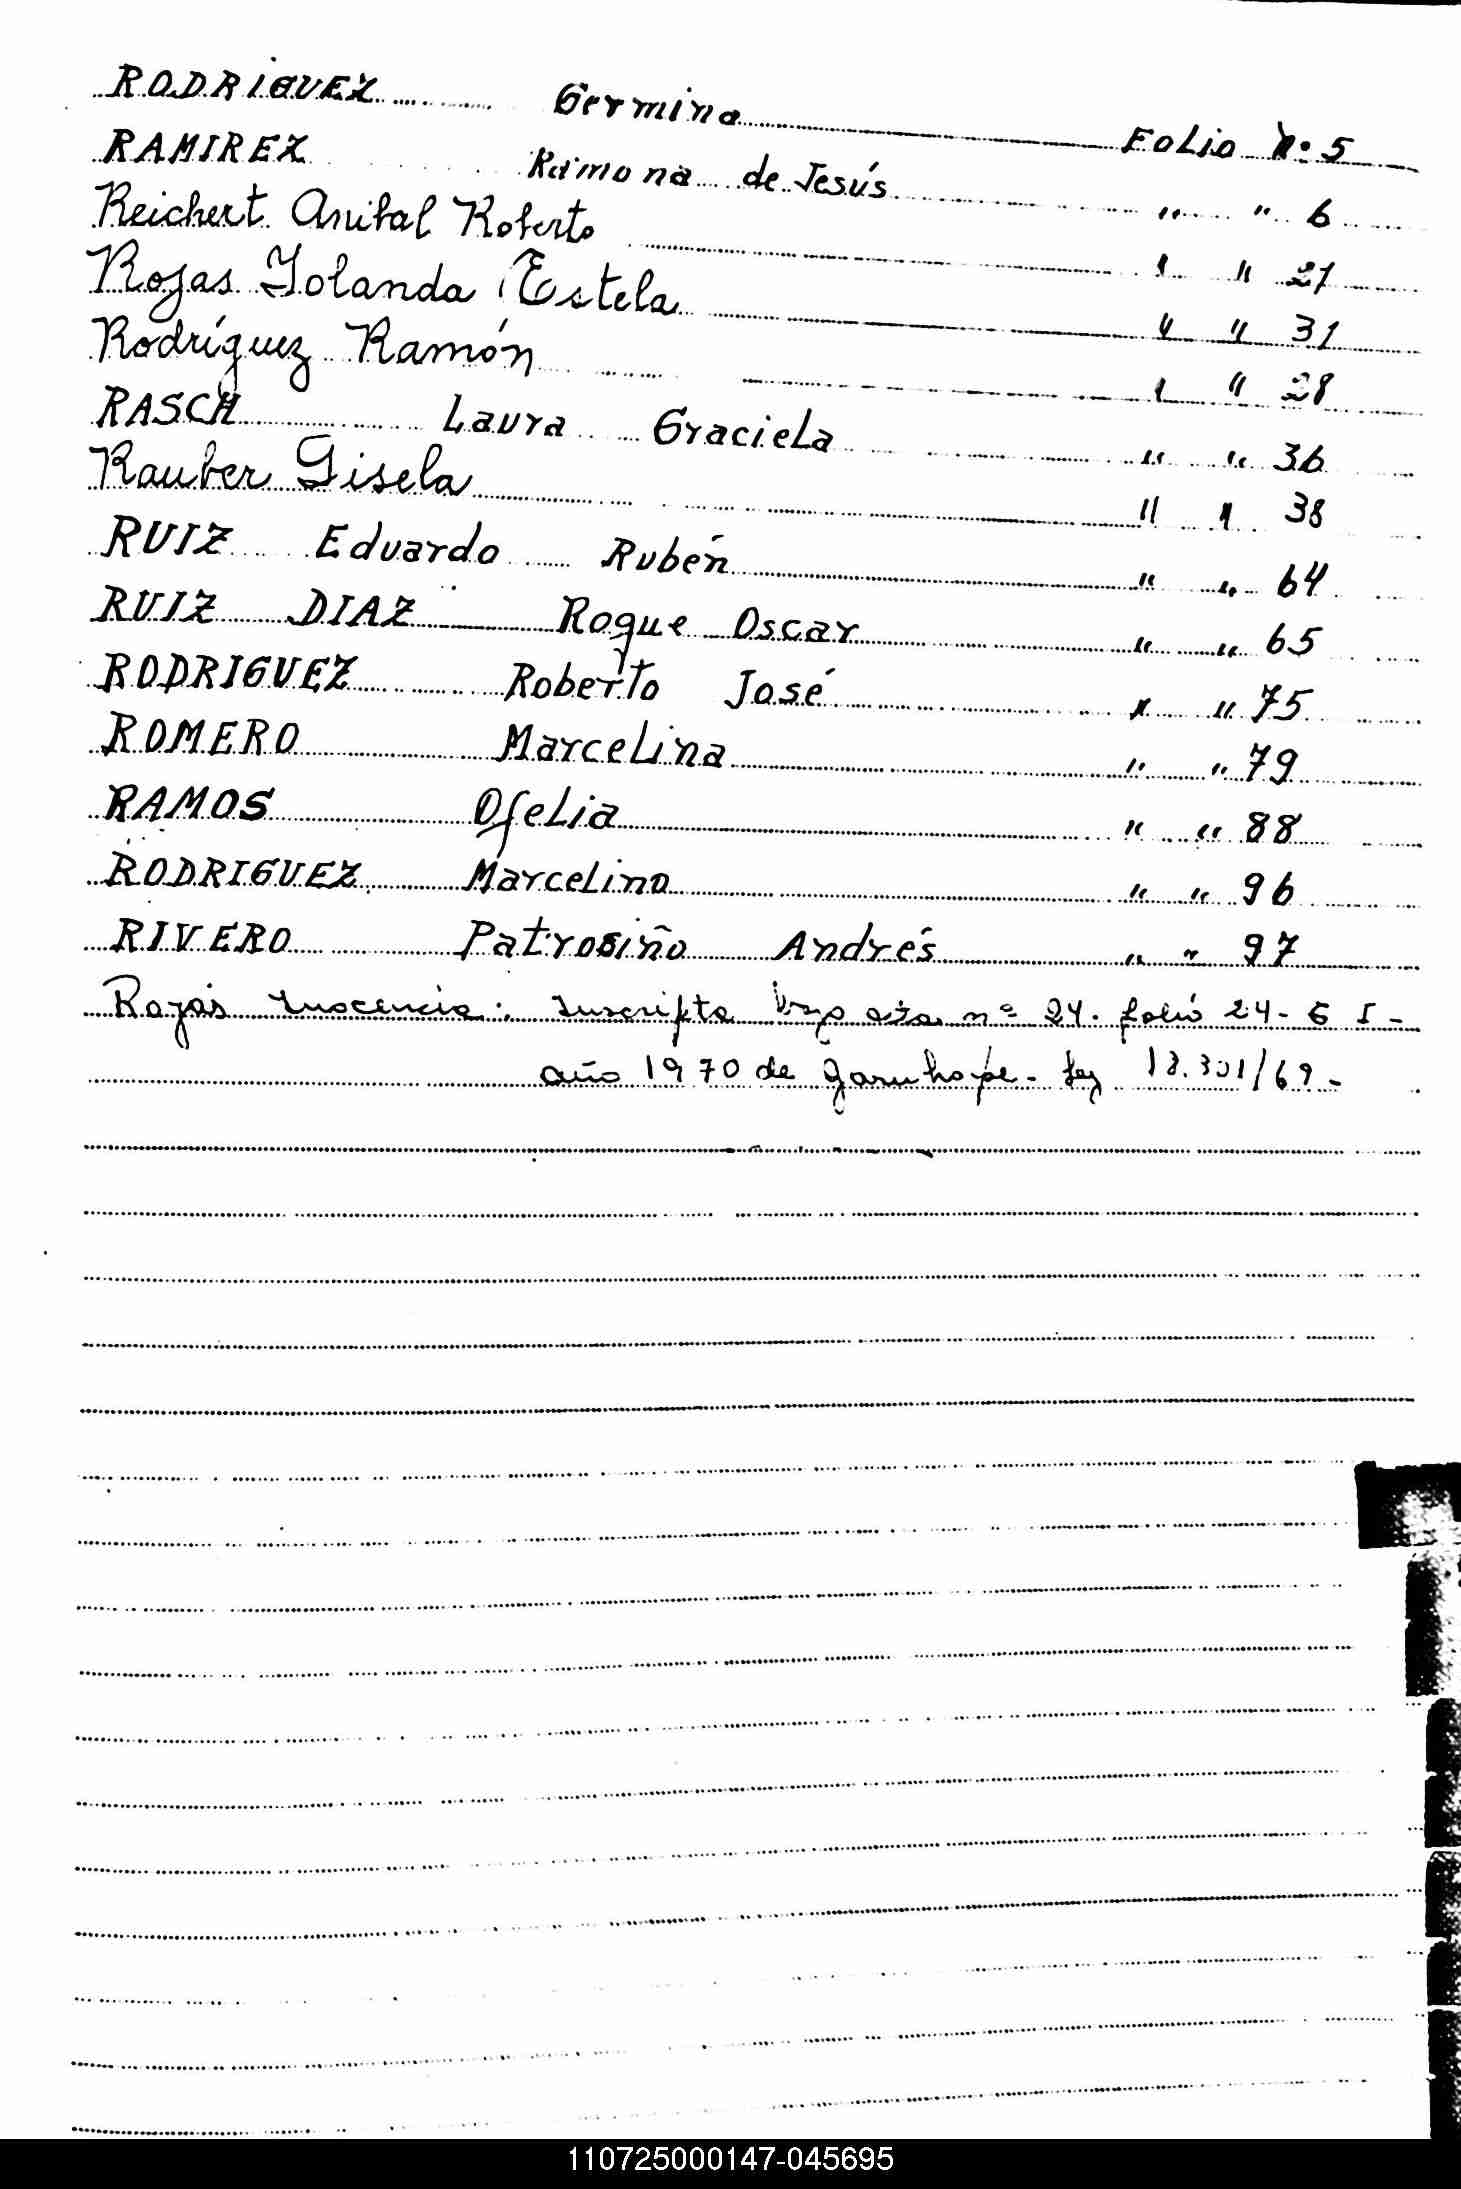 RODRIGUEZ Germina Folio N: 5
RAMIREZ Ramona de Jesús " " 6
Reichert Anibal Roberto " " 27
Rojas Yolanda Estela " " 31
Rodríguez Ramón " " 28
RASCH Laura Graciela " " 36
Rauber Gisela " " 38
RUIZ Eduardo Rubén " " 64
RUIZ DIAZ Roque Oscar " " 65
RODRIGUEZ Roberto José " " 75
ROMERO Marcelina " " 79
RAMOS Ofelia " " 88
RODRIGUEZ Marcelino " " 96
RIVERO Patrosiño Andrés " " 97
Rojas Inocencia: Inscripta bajo acta nº 24. folio 24-
año 1970 de Garuhapé - Ley 18.301/69-
110725000147-045695